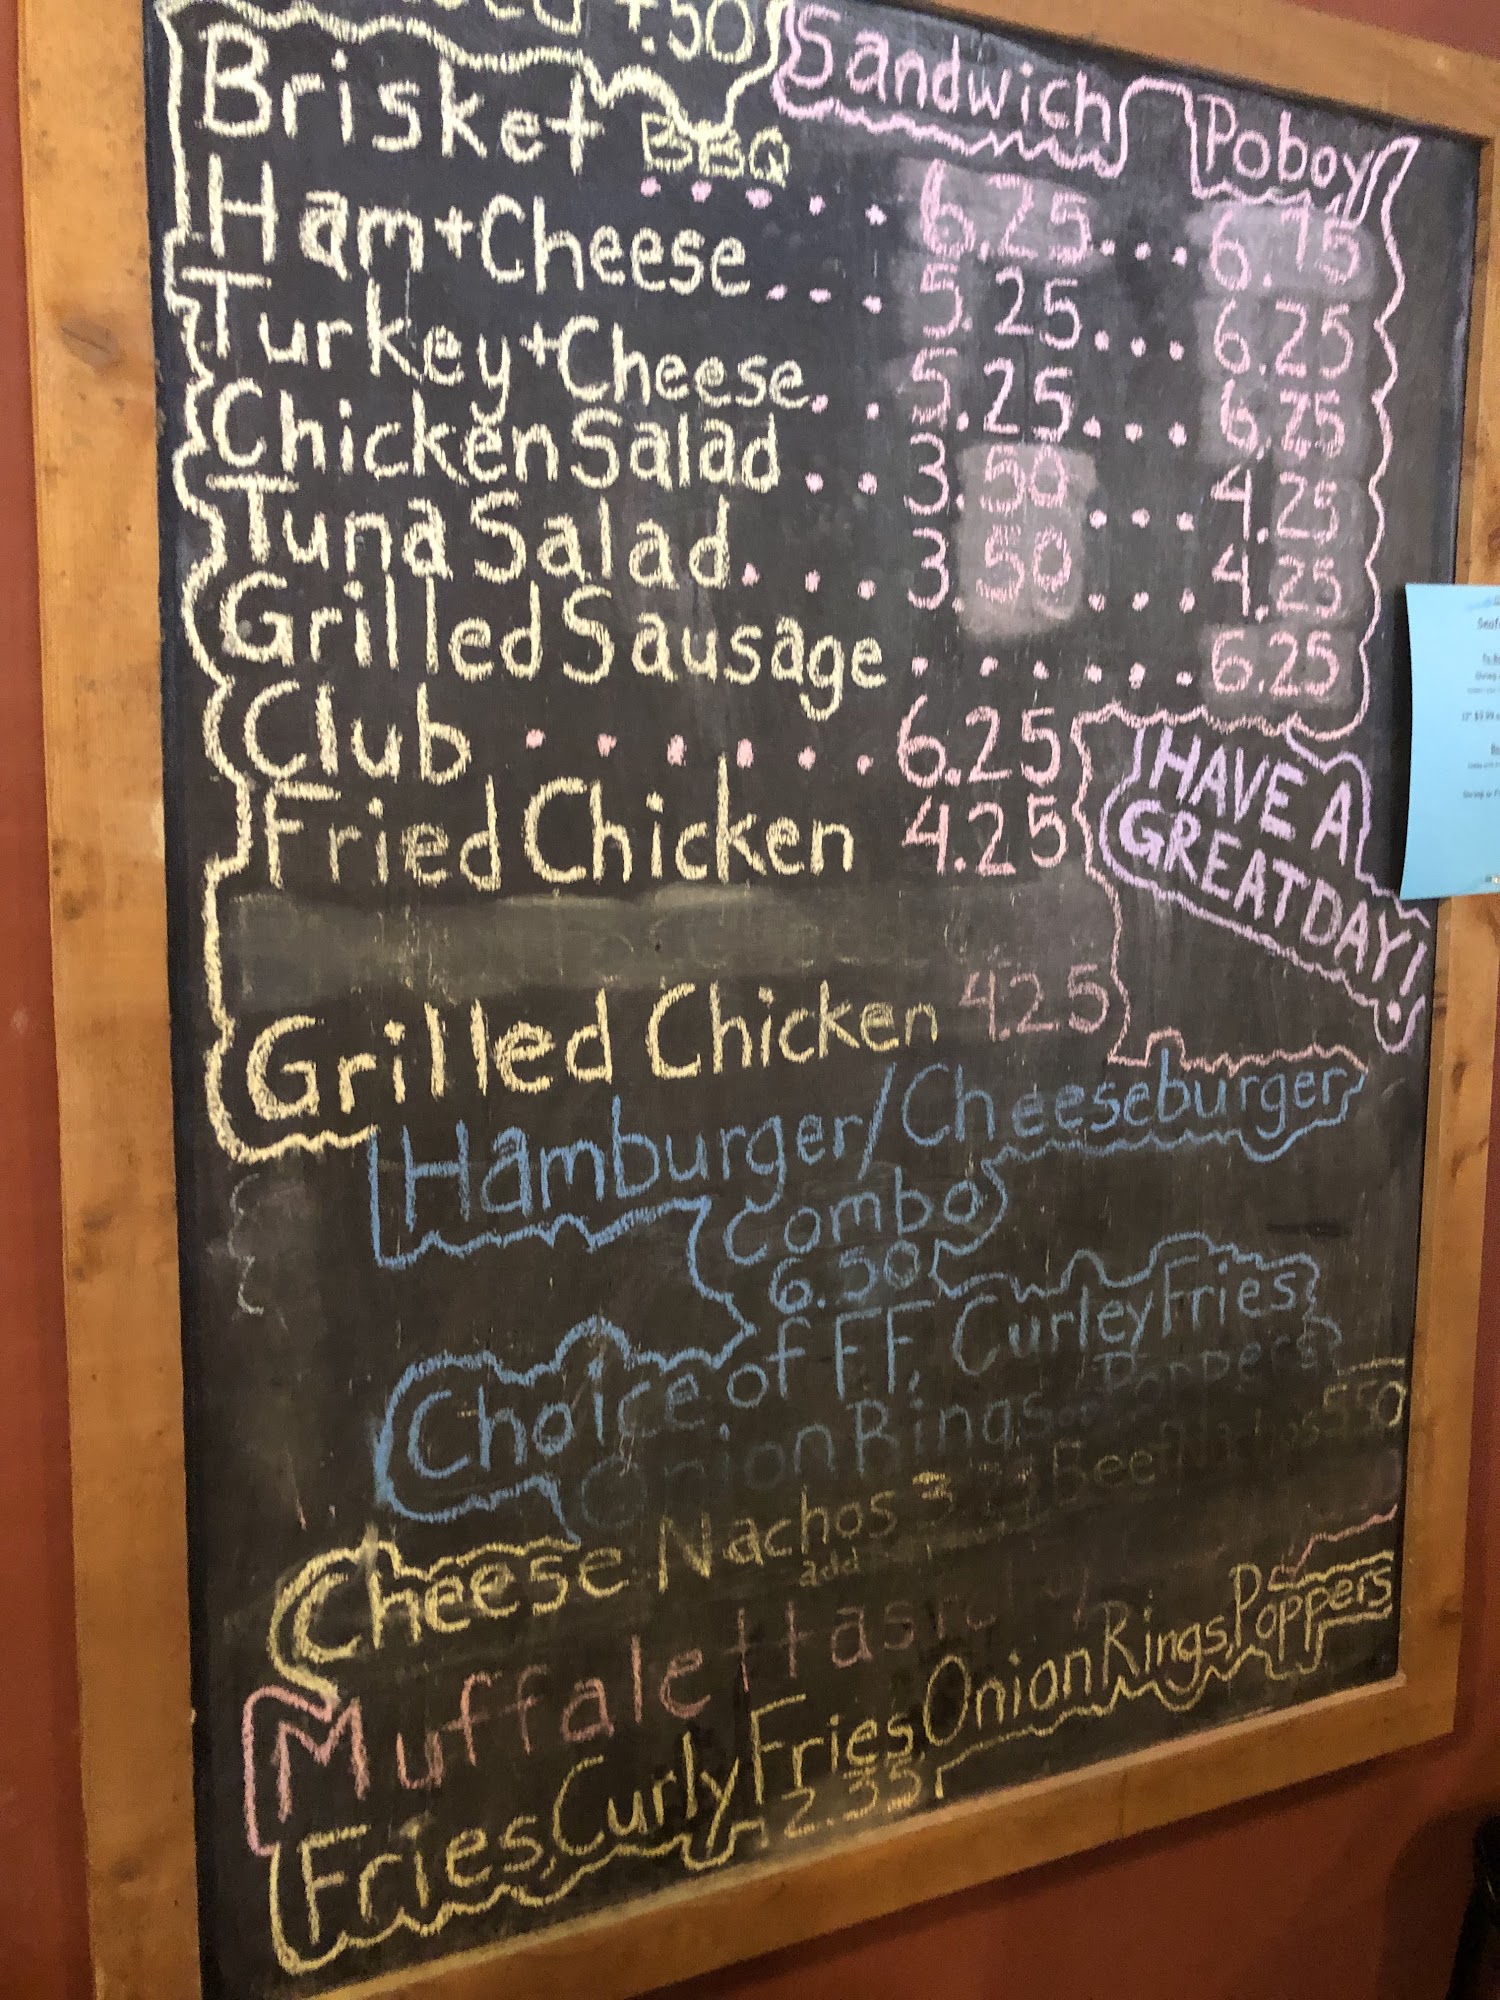 +.50
Sandwich Poboy
Brisket BBQ ..... 6.25 ... 6.75
Ham+Cheese ... 5.25 ... 6.25
Turkey+Cheese .. 5.25 ... 6.25
Chicken Salad .. 3.50 ... 4.25
Tuna Salad ... 3.50 ... 4.25
Grilled Sausage ...... 6.25
Club ...... 6.25
Fried Chicken 4.25
HAVE A
GREAT DAY!
Grilled Chicken 4.25
Hamburger/Cheeseburger
Combo
6.50
Choice of FF, Curley Fries,
Onion Rings or Poppers
Cheese Nachos 3. Beef Nachos 5.50
add
Muffaletta
Fries, Curly Fries, Onion Rings, Poppers